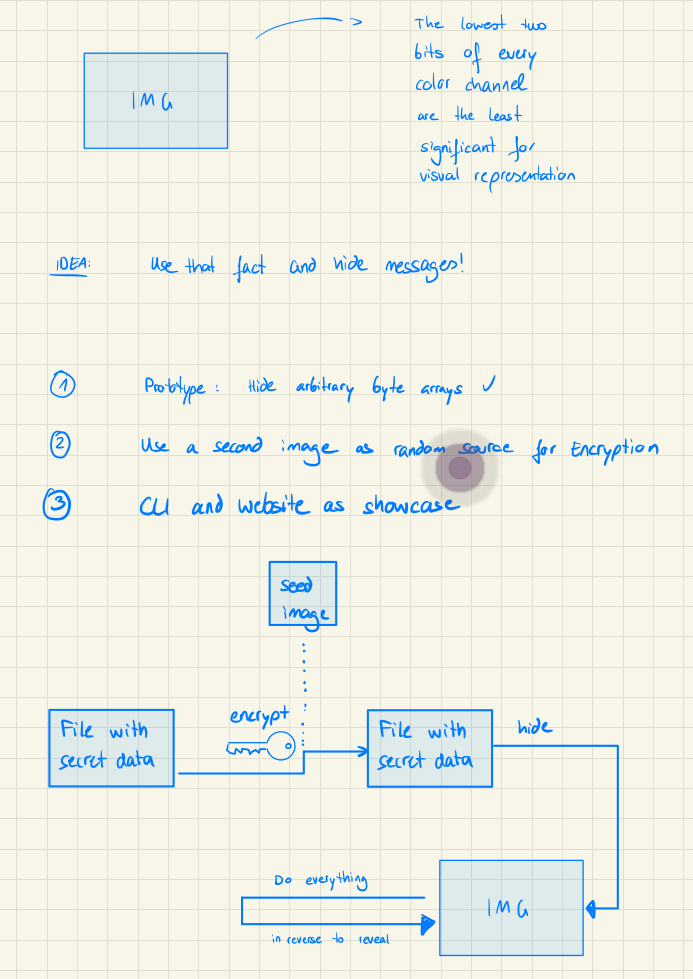 IMG
The lowest two
bits of every
color channel
are the least
significant for
visual representation
IDEA:
Use that fact and hide messages!
1 Prototype: Hide arbitrary byte arrays ✓
2 Use a second image as random source for Encryption
3 CLI and website as showcase
seed
image
encrypt
File with
secret data
File with
secret data
hide
Do everything
in reverse to reveal
IMG